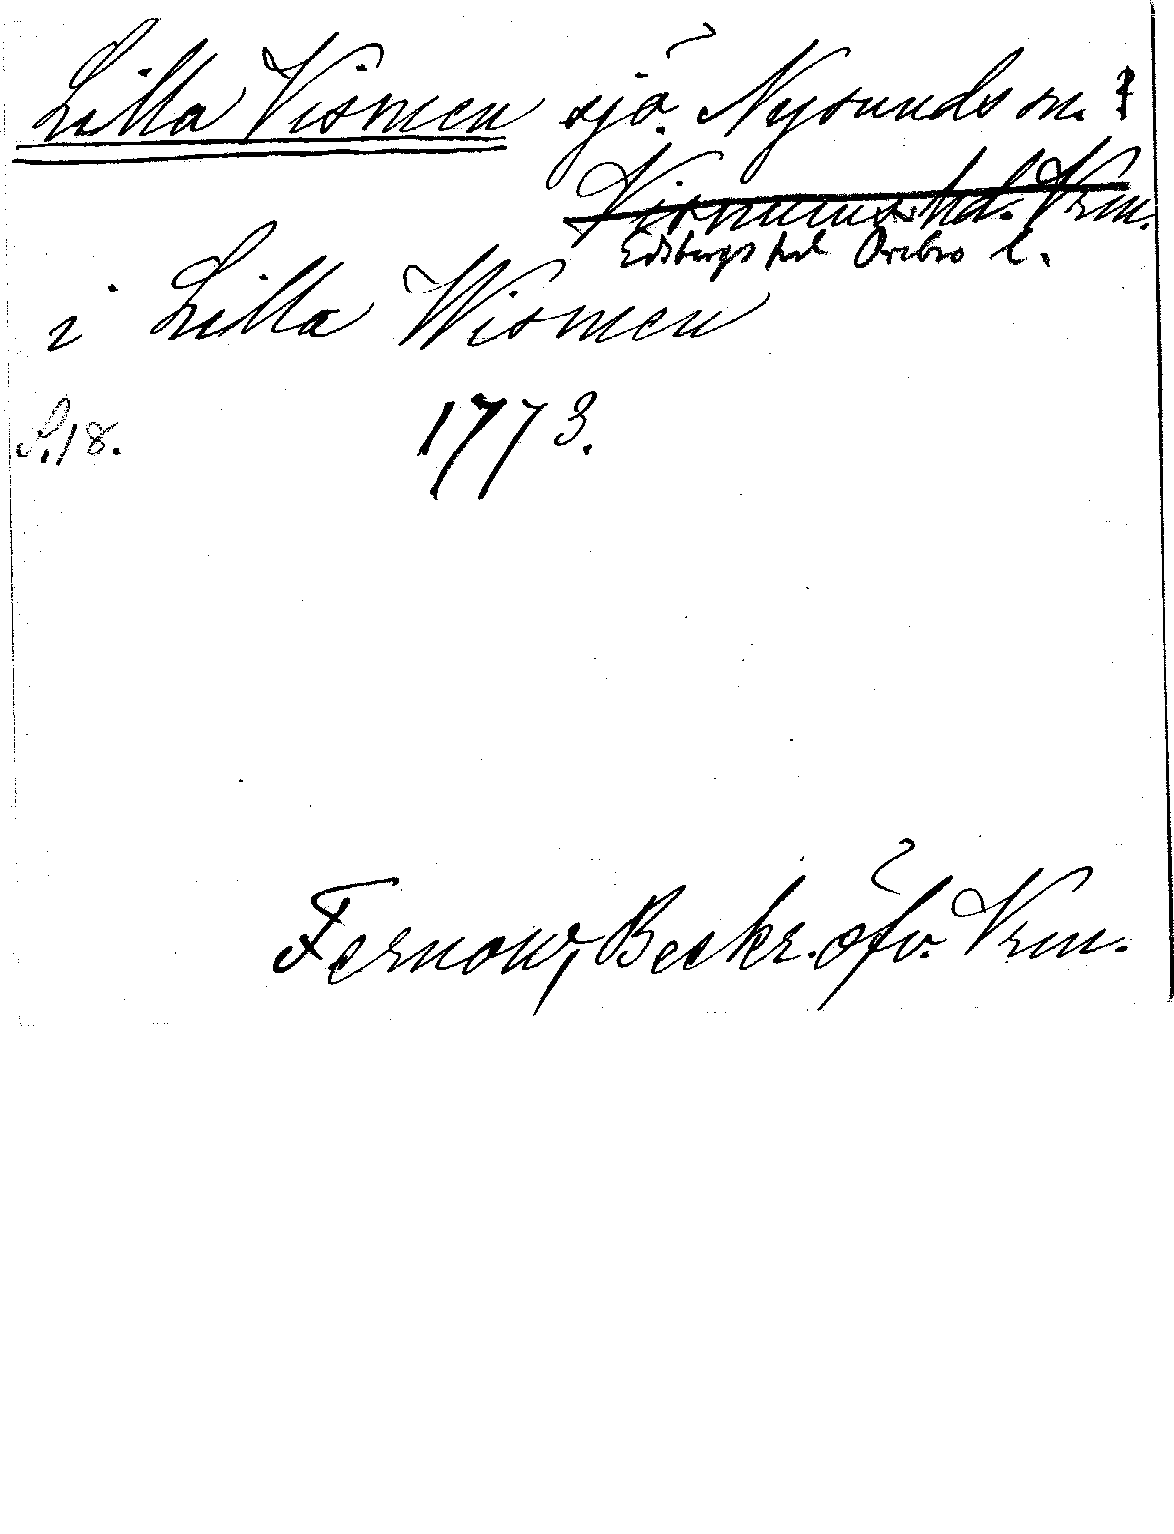 Lilla Vismen sjö. Nysunds sn.
Visnums hd. Vrm.
Edsbergs hd Örebro l.
i Lilla Wismen
S. 18. 1773.
Fernow, Beskr. öfv. Vrm.